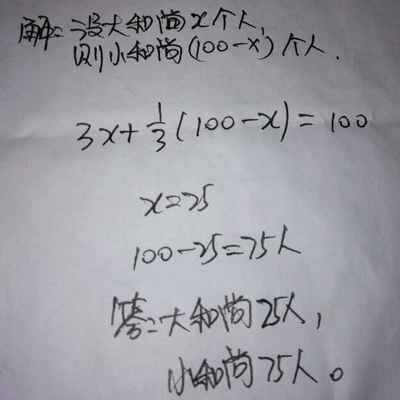 解:设大和尚x个人,
则小和尚(100-x)个人.
3x+1/3(100-x)=100
x=25
100-25=75人
答:大和尚25人,
小和尚75人。